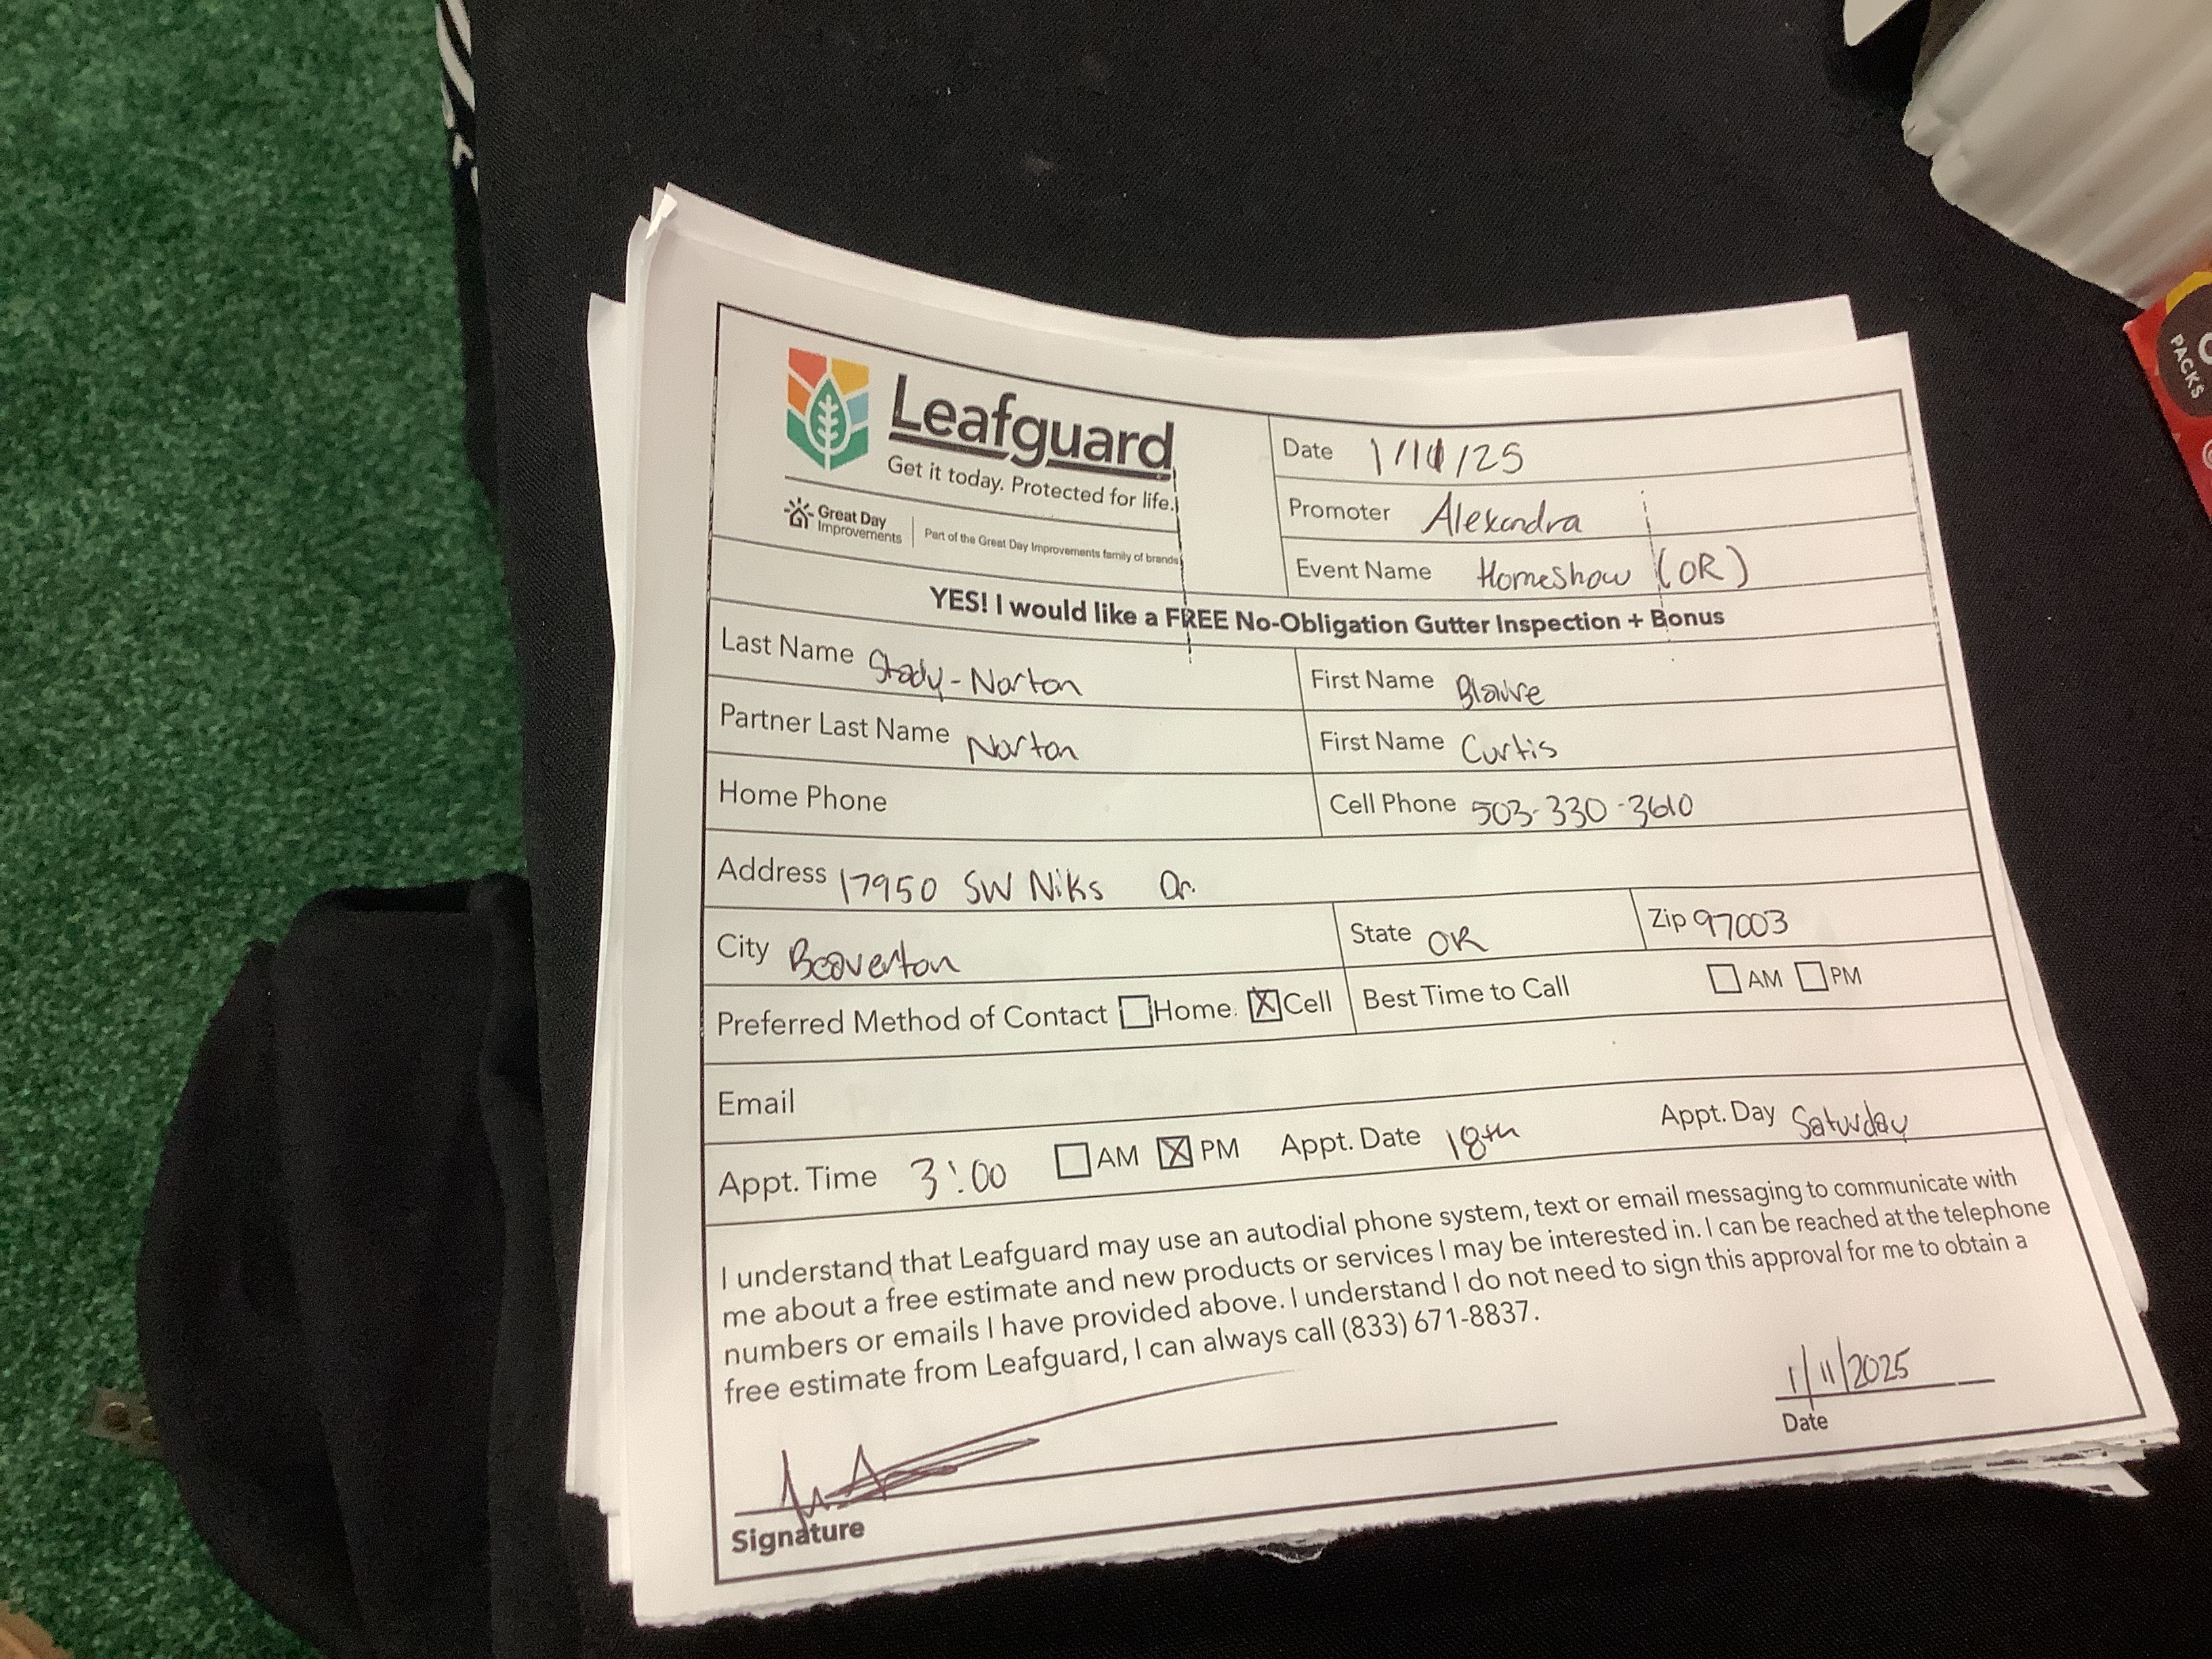 Leafguard
Get it today. Protected for life.
Great Day Improvements | Part of the Great Day Improvements family of brands
Date 1/11/25
Promoter Alexandra
Event Name Homeshow (OR)
YES! I would like a FREE No-Obligation Gutter Inspection + Bonus
Last Name Stady-Norton First Name Blaire
Partner Last Name Norton First Name Curtis
Home Phone Cell Phone 503-330-3610
Address 17950 SW Niks Dr.
City Beaverton State OR Zip 97003
Preferred Method of Contact Home. X Cell Best Time to Call AM PM
Email
Appt. Time 3:00 AM X PM Appt. Date 18th Appt. Day Saturday
I understand that Leafguard may use an autodial phone system, text or email messaging to communicate with
me about a free estimate and new products or services I may be interested in. I can be reached at the telephone
numbers or emails I have provided above. I understand I do not need to sign this approval for me to obtain a
free estimate from Leafguard, I can always call (833) 671-8837.
1/11/2025
Signature Date
PACKS